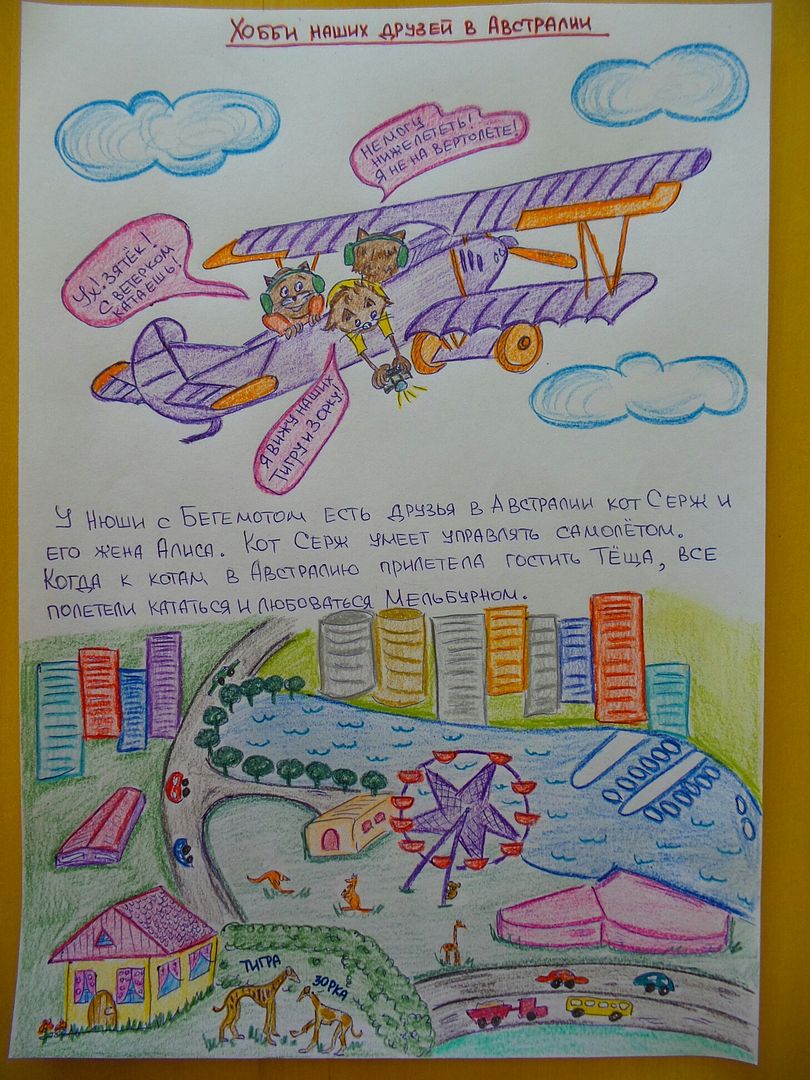 Хобби наших друзей в Австралии
Не могу
ниже лететь!
Я не на вертолёте!
Ух! Зятёк!
С ветерком
катаешь!
Я вижу наших
Тигру и Зорку!
У Нюши с Бегемотом есть друзья в Австралии кот Серж и
его жена Алиса. Кот Серж умеет управлять самолётом.
Когда к котам в Австралию прилетела гостить Тёща, все
полетели кататься и любоваться Мельбурном.
Тигра
Зорка